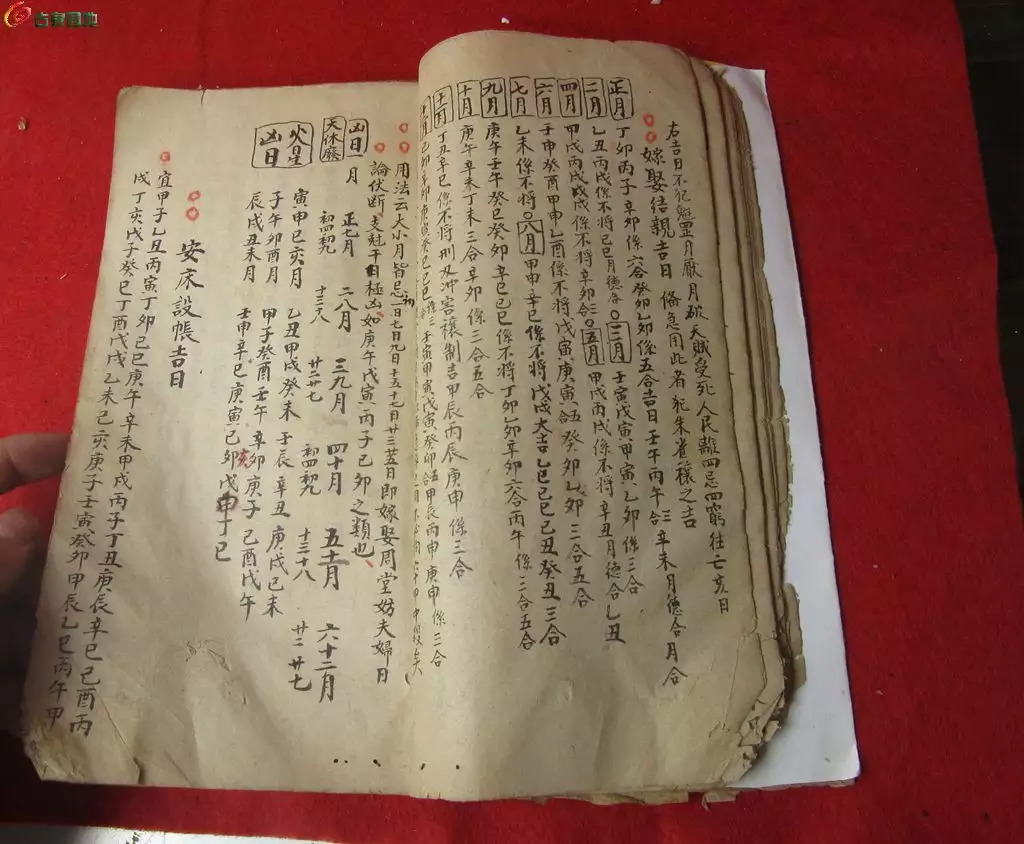 右吉日不犯魁罡月厭月破天賊受死人民離四忌四窮往亡亥日
嫁娶結親吉日 俻急用此者 𠃔朱雀穰之吉
正月 丁卯丙子辛卯係六合癸卯乙卯係五合吉日壬午丙午三合辛未月德合月合
二月 乙丑丙戌係不將己巳月德合 三月 壬寅戊寅甲寅乙卯係三合
四月 甲戌丙戌戊戌係不將辛卯合 五月 甲戌丙戌係不將辛丑月德合乙丑
六月 壬申癸酉甲申乙酉係不將戊寅庚寅五合癸卯乙卯三合五合
七月 乙未係不將 八月 甲申辛巳係不將戊戌大吉乙巳己巳己丑癸丑三合
九月 庚午壬午癸巳癸卯辛巳己巳係不將丁卯乙卯辛卯六合丙午係三合五合
十月 庚午辛未丁未三合辛卯係三合五合
十一月 丁丑辛巳係不將刑及冲害穰制吉甲辰丙辰庚申係三合
用法云大小月皆忌初一日七日九日十五十七日廿三廿五日即嫁娶周堂妨夫婦日
論伏断支尅干日極凶如庚午戊寅丙子己卯之類也
凶日一月
天休廢 正七月 二八月 三九月 四十月 五十一月 六十二月
初四初九 十三十八 廿二廿七 初四初九 十三十八 廿二廿七
火星凶日 寅申巳亥月 乙丑甲戌癸未壬辰辛丑庚戌己未
子午卯酉月 甲子癸酉壬午辛卯庚子己酉戊午
辰戌丑未月 壬申辛巳庚寅己亥戊申丁巳
安床設帳吉日
宜甲子乙丑丙寅丁卯己巳庚午辛未甲戌丙子丁丑庚辰辛巳己酉丙
戌丁亥戊子癸巳丁酉戊戌乙未己亥庚子壬寅癸卯甲辰乙巳丙午甲